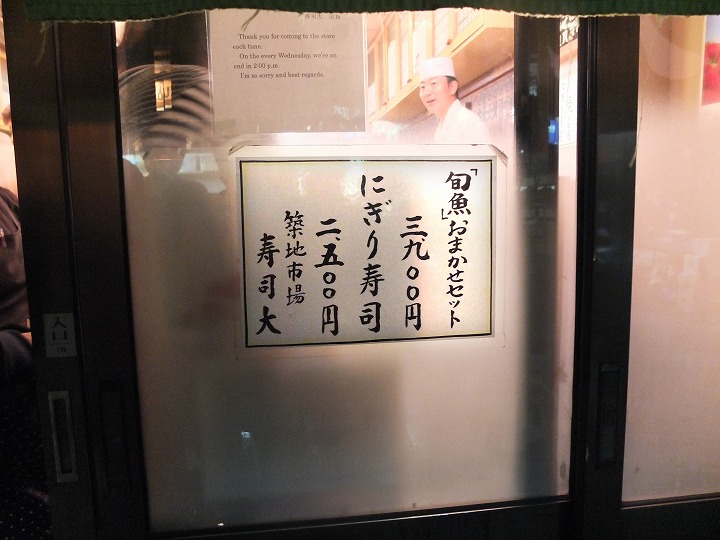 寿司大 店長
Thank you for coming to the store
each time.
On the every Wednesday, we're an
end in 2:00 p.m.
I'm so sorry and best regards.
「旬魚」おまかせセット
三、九〇〇円
にぎり寿司
二、五〇〇円
築地市場
寿司大
入口